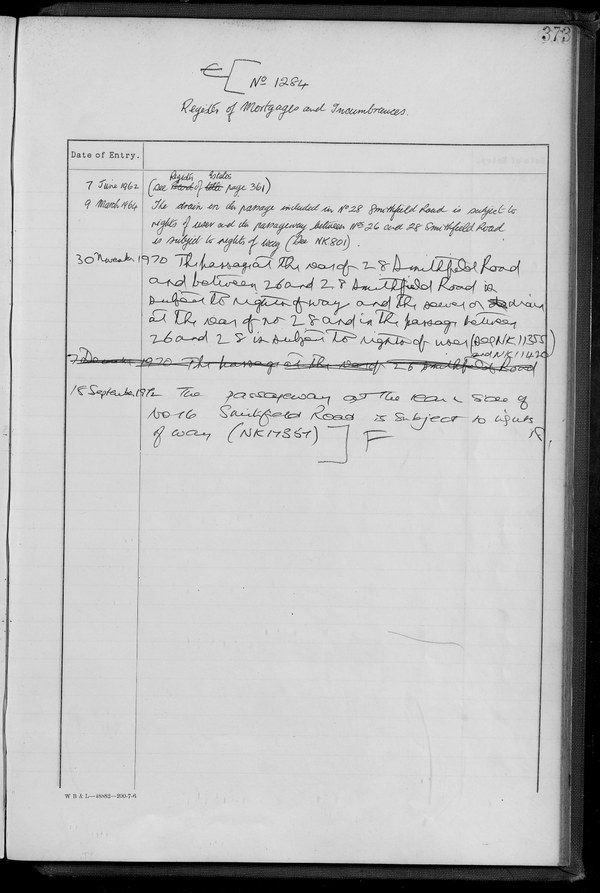 373
€[ No 1284
Register of Mortgages and Incumbrances.
Date of Entry.
Register Estates
7 June 1962 (See of page 361)
9 March 1964 The drain in the passage included in No 28 Smithfield Road is subject to
rights of user and the passageway between Nos 26 and 28 Smithfield Road
is subject to rights of way (See NK801).
30 November 1970 The passage at the rear of 28 Smithfield Road
and between 26 and 28 Smithfield Road is
subject to rights of way and the sewer or drain
at the rear of no 28 and in the passage between
26 and 28 is subject to rights of user (See NK11355)
and NK11420
7 December 1970 The passage at the rear of 26 Smithfield Road
15 September 1972 The passageway at the rear & side of
No 16 Smithfield Road is subject to rights
of way (NK17357) ] F
W B & L—49882—200-7-6